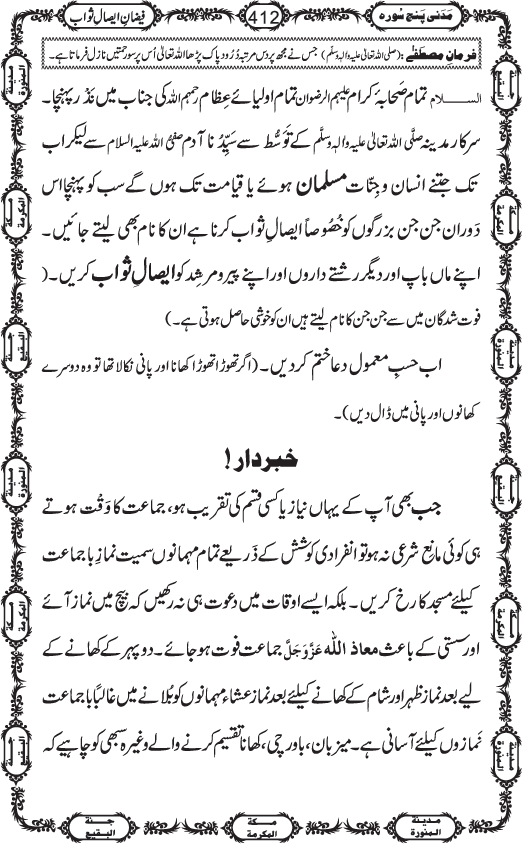 مَدَنی پنج سُورہ
412
فیضانِ ایصالِ ثواب
فرمانِ مصطَفٰے : (صلی اللہ تعالیٰ علیہ والہٖ وسلّم) جس نے مجھ پر دس مرتبہ دُرُودِ پاک پڑھا اللہ تعالیٰ اُس پر سو رحمتیں نازل فرماتا ہے۔
السلام تمام صَحابۂ کرام علیہم الرضوان تمام اولیائے عِظام رحمہم اللہ کی جناب میں نَذْر پہنچا۔
سرکارِ مدینہ صلَّی اللہ تعالیٰ علیہ والہٖ وسلَّم کے تَوَسُّط سے سیِّدُنا آدم صفیُّ اللہ علیہ السلام سے لیکر اب
تک جتنے انسان و جِنّات مسلمان ہوئے یا قیامت تک ہوں گے سب کو پہنچا اس
دَوران جن جن بزرگوں کو خُصُوصاً ایصالِ ثواب کرنا ہے ان کا نام بھی لیتے جائیں۔
اپنے ماں باپ اور دیگر رشتے داروں اور اپنے پیر و مرشِد کو ایصالِ ثواب کریں۔(
فوت شدگان میں سے جن جن کا نام لیتے ہیں ان کو خوشی حاصل ہوتی ہے۔)
اب حسبِ معمول دعا ختم کر دیں۔ (اگر تھوڑا تھوڑا کھانا اور پانی نکالا تھا تو وہ دوسرے
کھانوں اور پانی میں ڈال دیں)۔
خبردار!
جب بھی آپ کے یہاں نیاز یا کسی قسم کی تقریب ہو، جماعت کا وَقْت ہوتے
ہی کوئی مانِعِ شرعی نہ ہو تو انفرادی کوشش کے ذَرِیعے تمام مہمانوں سمیت نمازِ با جماعت
کیلئے مسجد کا رخ کریں۔ بلکہ ایسے اوقات میں دعوت ہی نہ رکھیں کہ بیچ میں نماز آئے
اور سستی کے باعث معاذ اللہ عَزَّوَجَلَّ جماعت فوت ہو جائے۔ دو پہر کے کھانے کے
لیے بعد نمازِ ظہر اور شام کے کھانے کیلئے بعد نمازِ عشاء مہمانوں کو بُلانے میں غالِباً با جماعت
نَمازوں کیلئے آسانی ہے۔ میزبان، باورچی، کھانا تقسیم کرنے والے وغیرہ سبھی کو چاہیے کہ
مدینۃ المنورۃ
مکۃ المکرمۃ
جنۃ البقیع